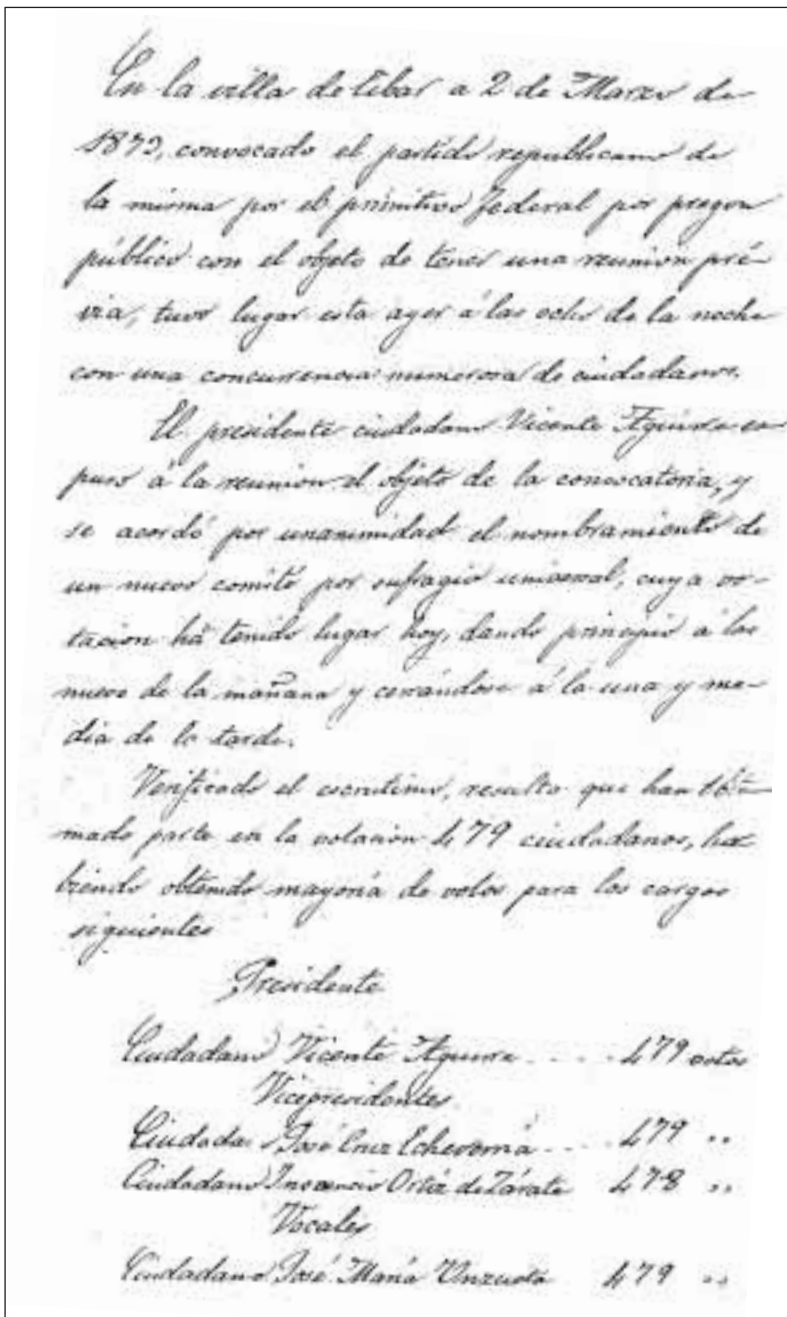 En la villa de Eibar a 2 de Marzo de
1873, convocado el partido republicano de
la misma por el primitivo federal por pregon
público con el objeto de tener una reunion pré-
via, tuvo lugar esta ayer á las ocho de la noche
con una concurrencia numerosa de ciudadanos.
El presidente ciudadano Vicente Aguirre es
puso á la reunion el objeto de la convocatoria, y
se acordó por unanimidad el nombramiento de
un nuevo comité por sufragio universal, cuya vo-
tacion há tenido lugar hoy, dando principio á las
nueve de la mañana y cerrándose á la una y me-
dia de la tarde.
Verificado el escrutinio, resulta que han to-
mado parte en la votacion 479 ciudadanos, ha-
biendo obtenido mayoría de votos para los cargos
siguientes
Presidente
Ciudadano Vicente Aguirre .... 479 votos
Vicepresidentes
Ciudada José Cruz Echeverría ... 479 "
Ciudadano Inocencio Ortiz de Zárate 478 "
Vocales
Ciudadano José María Unzueta 479 "